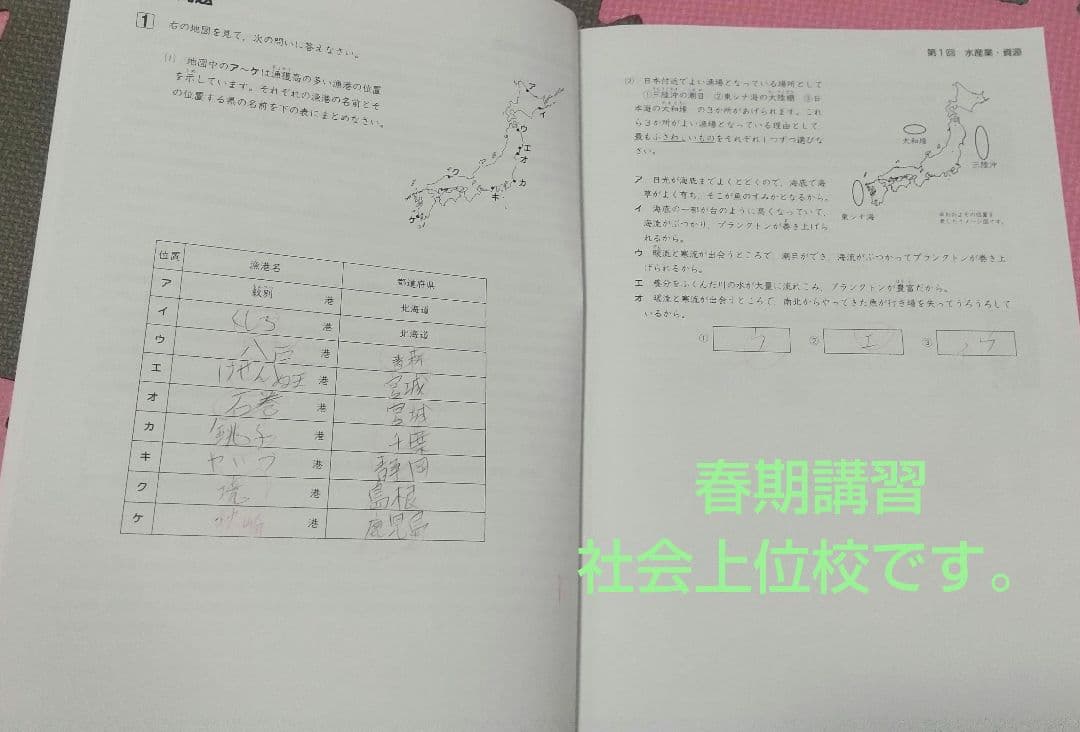 1 右の地図を見て，次の問いに答えなさい。
(1) 地図中のア〜ケは漁獲高の多い漁港の位置
を示しています。それぞれの漁港の名前とそ
の位置する県の名前を下の表にまとめなさい。
ア
イ
ウ
エ
オ
カ
キ
ク
ケ
位置 漁港名 都道府県
ア 紋別 港 北海道
イ くしろ 港 北海道
ウ 八戸 港 青森
エ けせんぬま 港 宮城
オ 石巻 港 宮城
カ 銚子 港 千葉
キ やいづ 港 静岡
ク 境 港 島根
ケ 港 鹿児島
第1回 水産業・資源
(2) 日本付近でよい漁場となっている場所として
①三陸沖の潮目 ②東シナ海の大陸棚 ③日
本海の大和堆 の3か所があげられます。これ
ら3か所がよい漁場となっている理由として
最もふさわしいものをそれぞれ1つずつ選びな
さい。
大和堆
三陸沖
東シナ海
ア 日光が海底までよくとどくので，海底で海
草がよく育ち，そこが魚のすみかとなるから。
イ 海底の一部が台のように高くなっていて，
海流がぶつかり，プランクトンが巻き上げら
れるから。
ウ 暖流と寒流が出会うところで，潮目ができ，海流がぶつかってプランクトンが巻き上
げられるから。
エ 養分をふくんだ川の水が大量に流れこみ，プランクトンが豊富だから。
オ 暖流と寒流が出会うところで，南北からやってきた魚が行き場を失ってうろうろして
いるから。
① ウ ② エ ③
春期講習
社会上位校です。